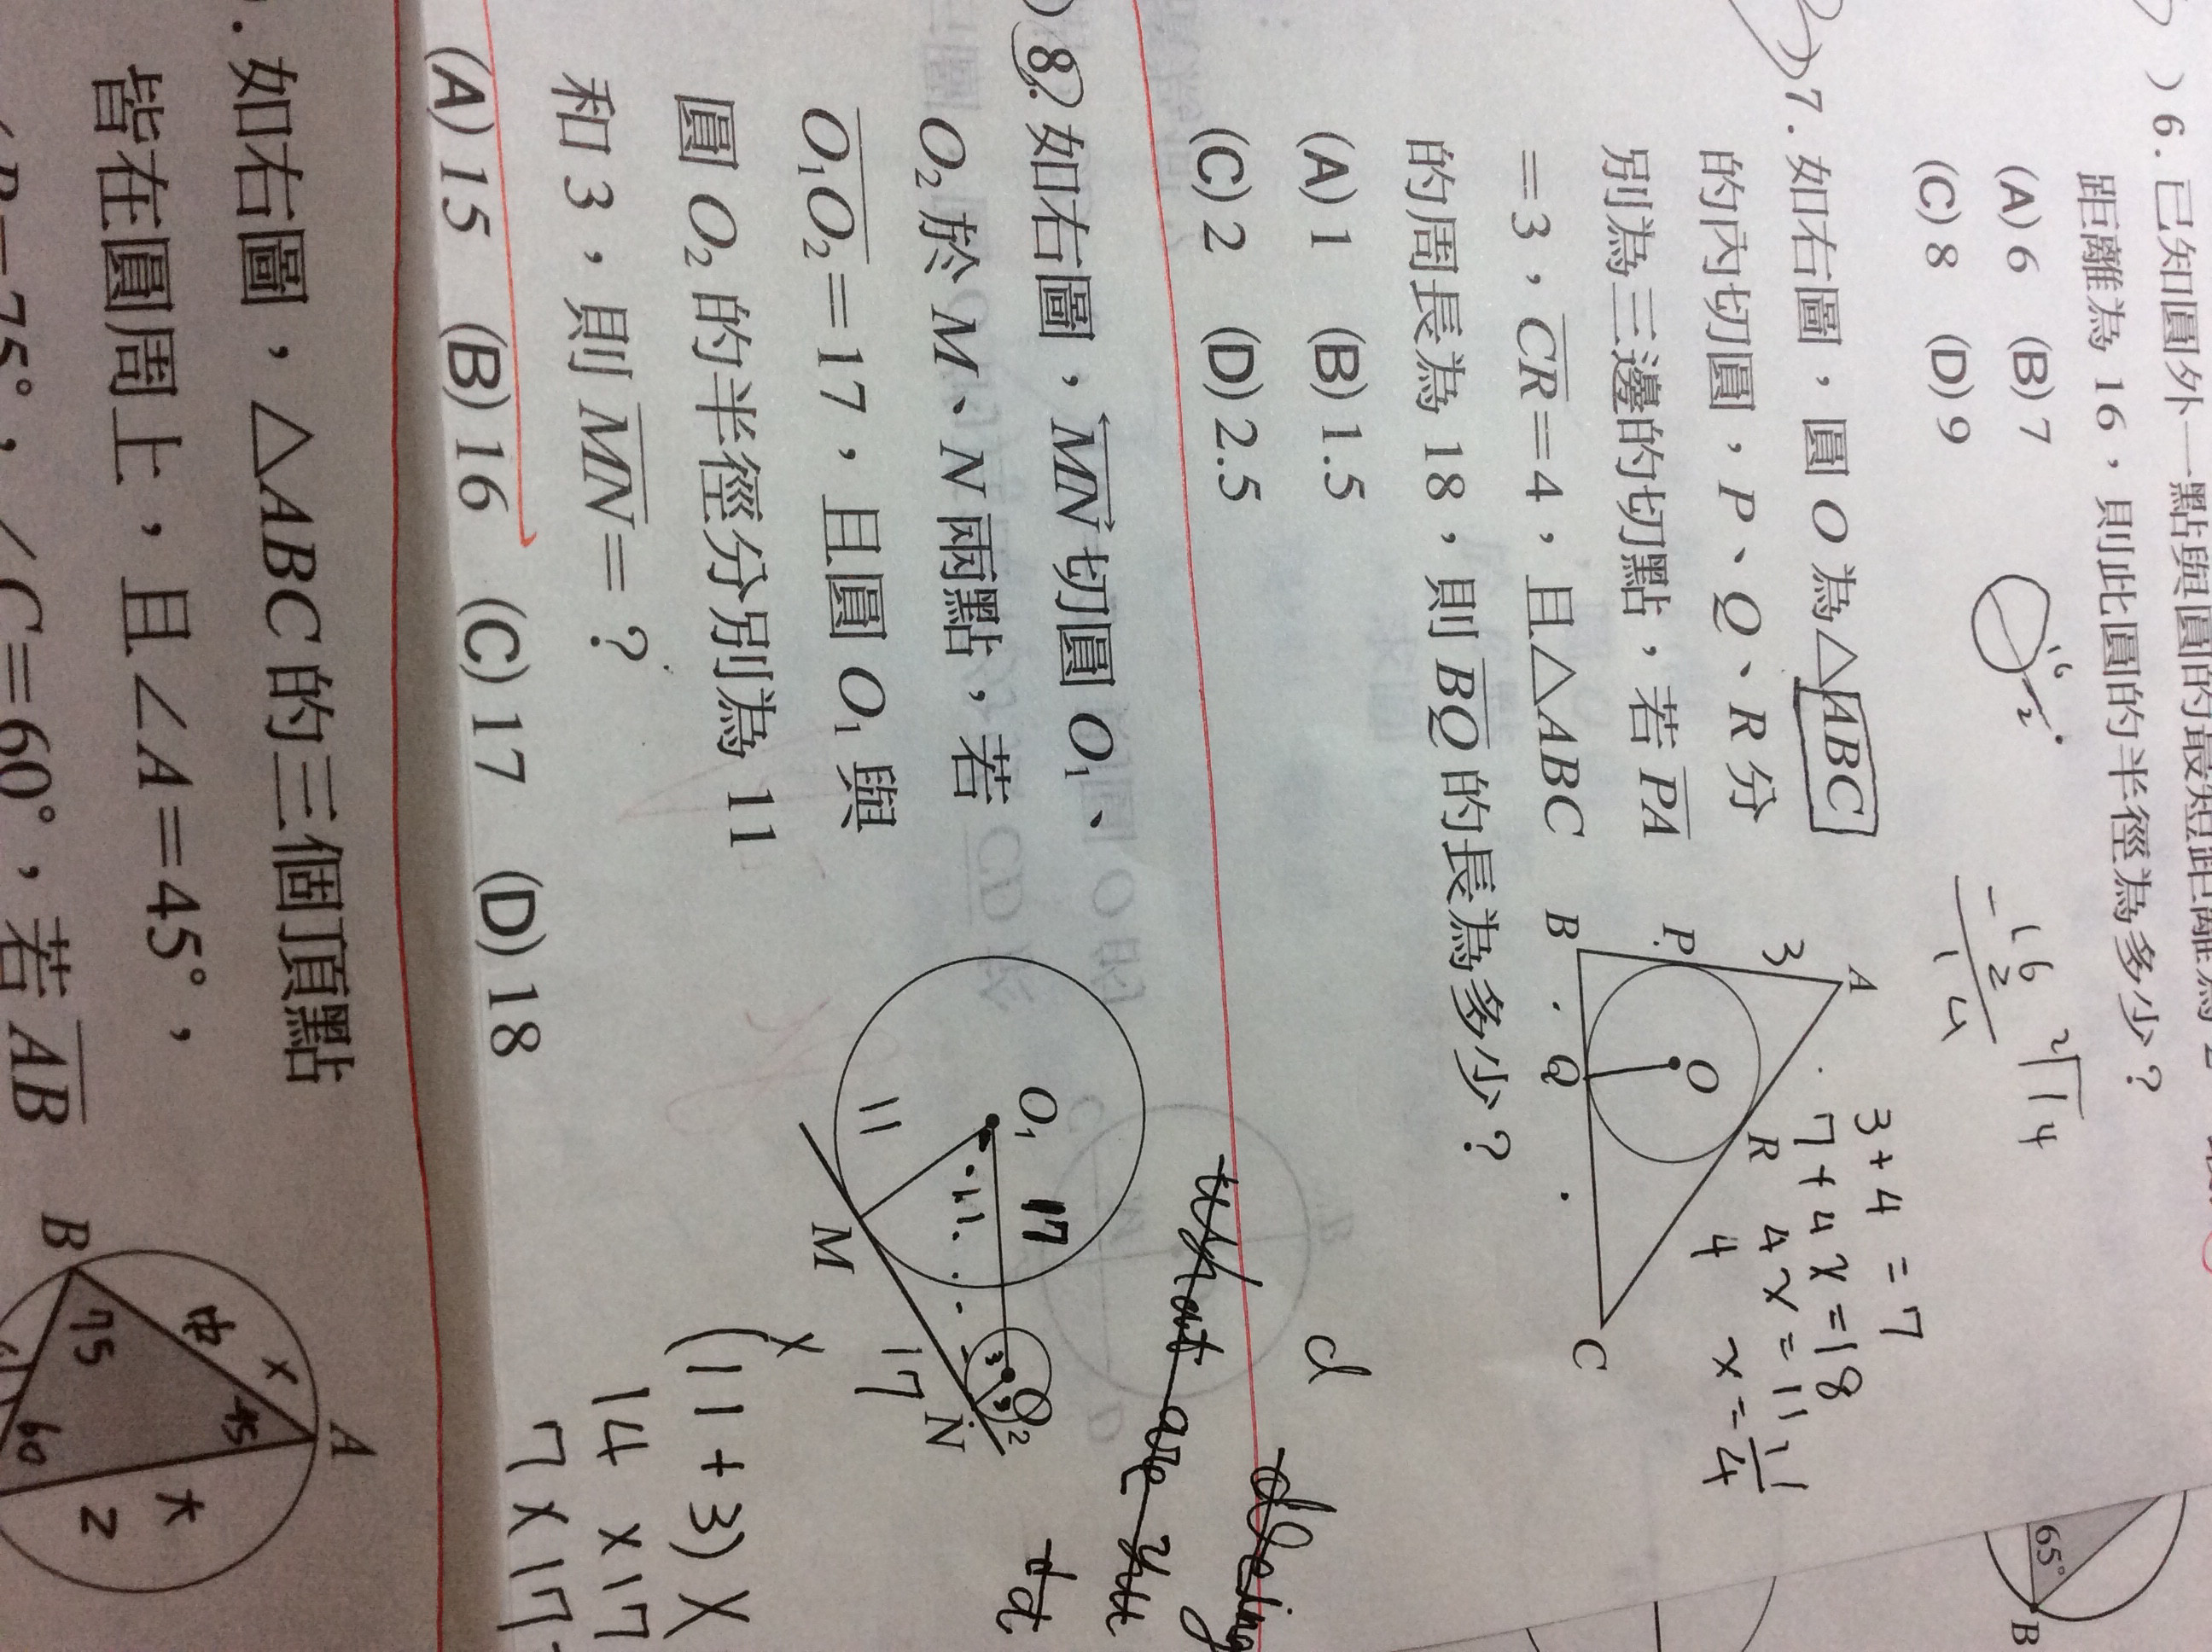 )6.已知圓外一點與圓的最短距離為2
距離為16,則此圓的半徑為多少?
(A)6 (B)7
(C)8 (D)9
16
2
16
-2
14
2√14
65°
B
)7.如右圖,圓O為△ABC
的內切圓,P、Q、R分
別為三邊的切點,若PA
=3,CR=4,且△ABC
的周長為18,則BQ的長為多少?
(A)1 (B)1.5
(C)2 (D)2.5
A
3
P
B
O
R
Q
C
3+4=7
7+4x=18
4x=11
4
x=11/4
d
what are you
dt
)8.如右圖,MN切圓O₁、
O₂於M、N兩點,若
O₁O₂=17,且圓O₁與
圓O₂的半徑分別為11
和3,則MN=?
(A)15 (B)16 (C)17 (D)18
O₁
17
11
11
3
O₂
M
N
17
x
(11+3)x
14x17
7x17
.如右圖,△ABC的三個頂點
皆在圓周上,且∠A=45°,
∠B=75°,∠C=60°,若AB
A
B
75
45
60
x
x
2